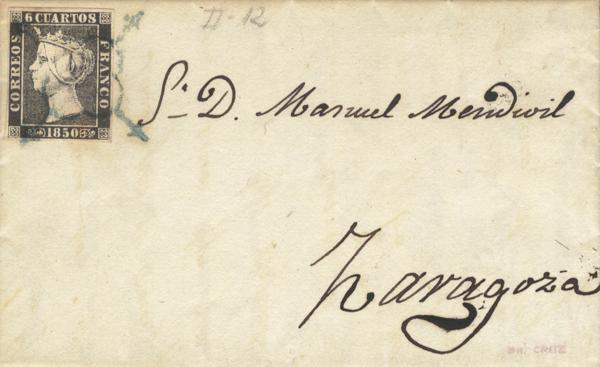 II-12
6 CUARTOS
CORREOS
FRANCO
1850
Sr. D. Manuel Mendivil
Zaragoza